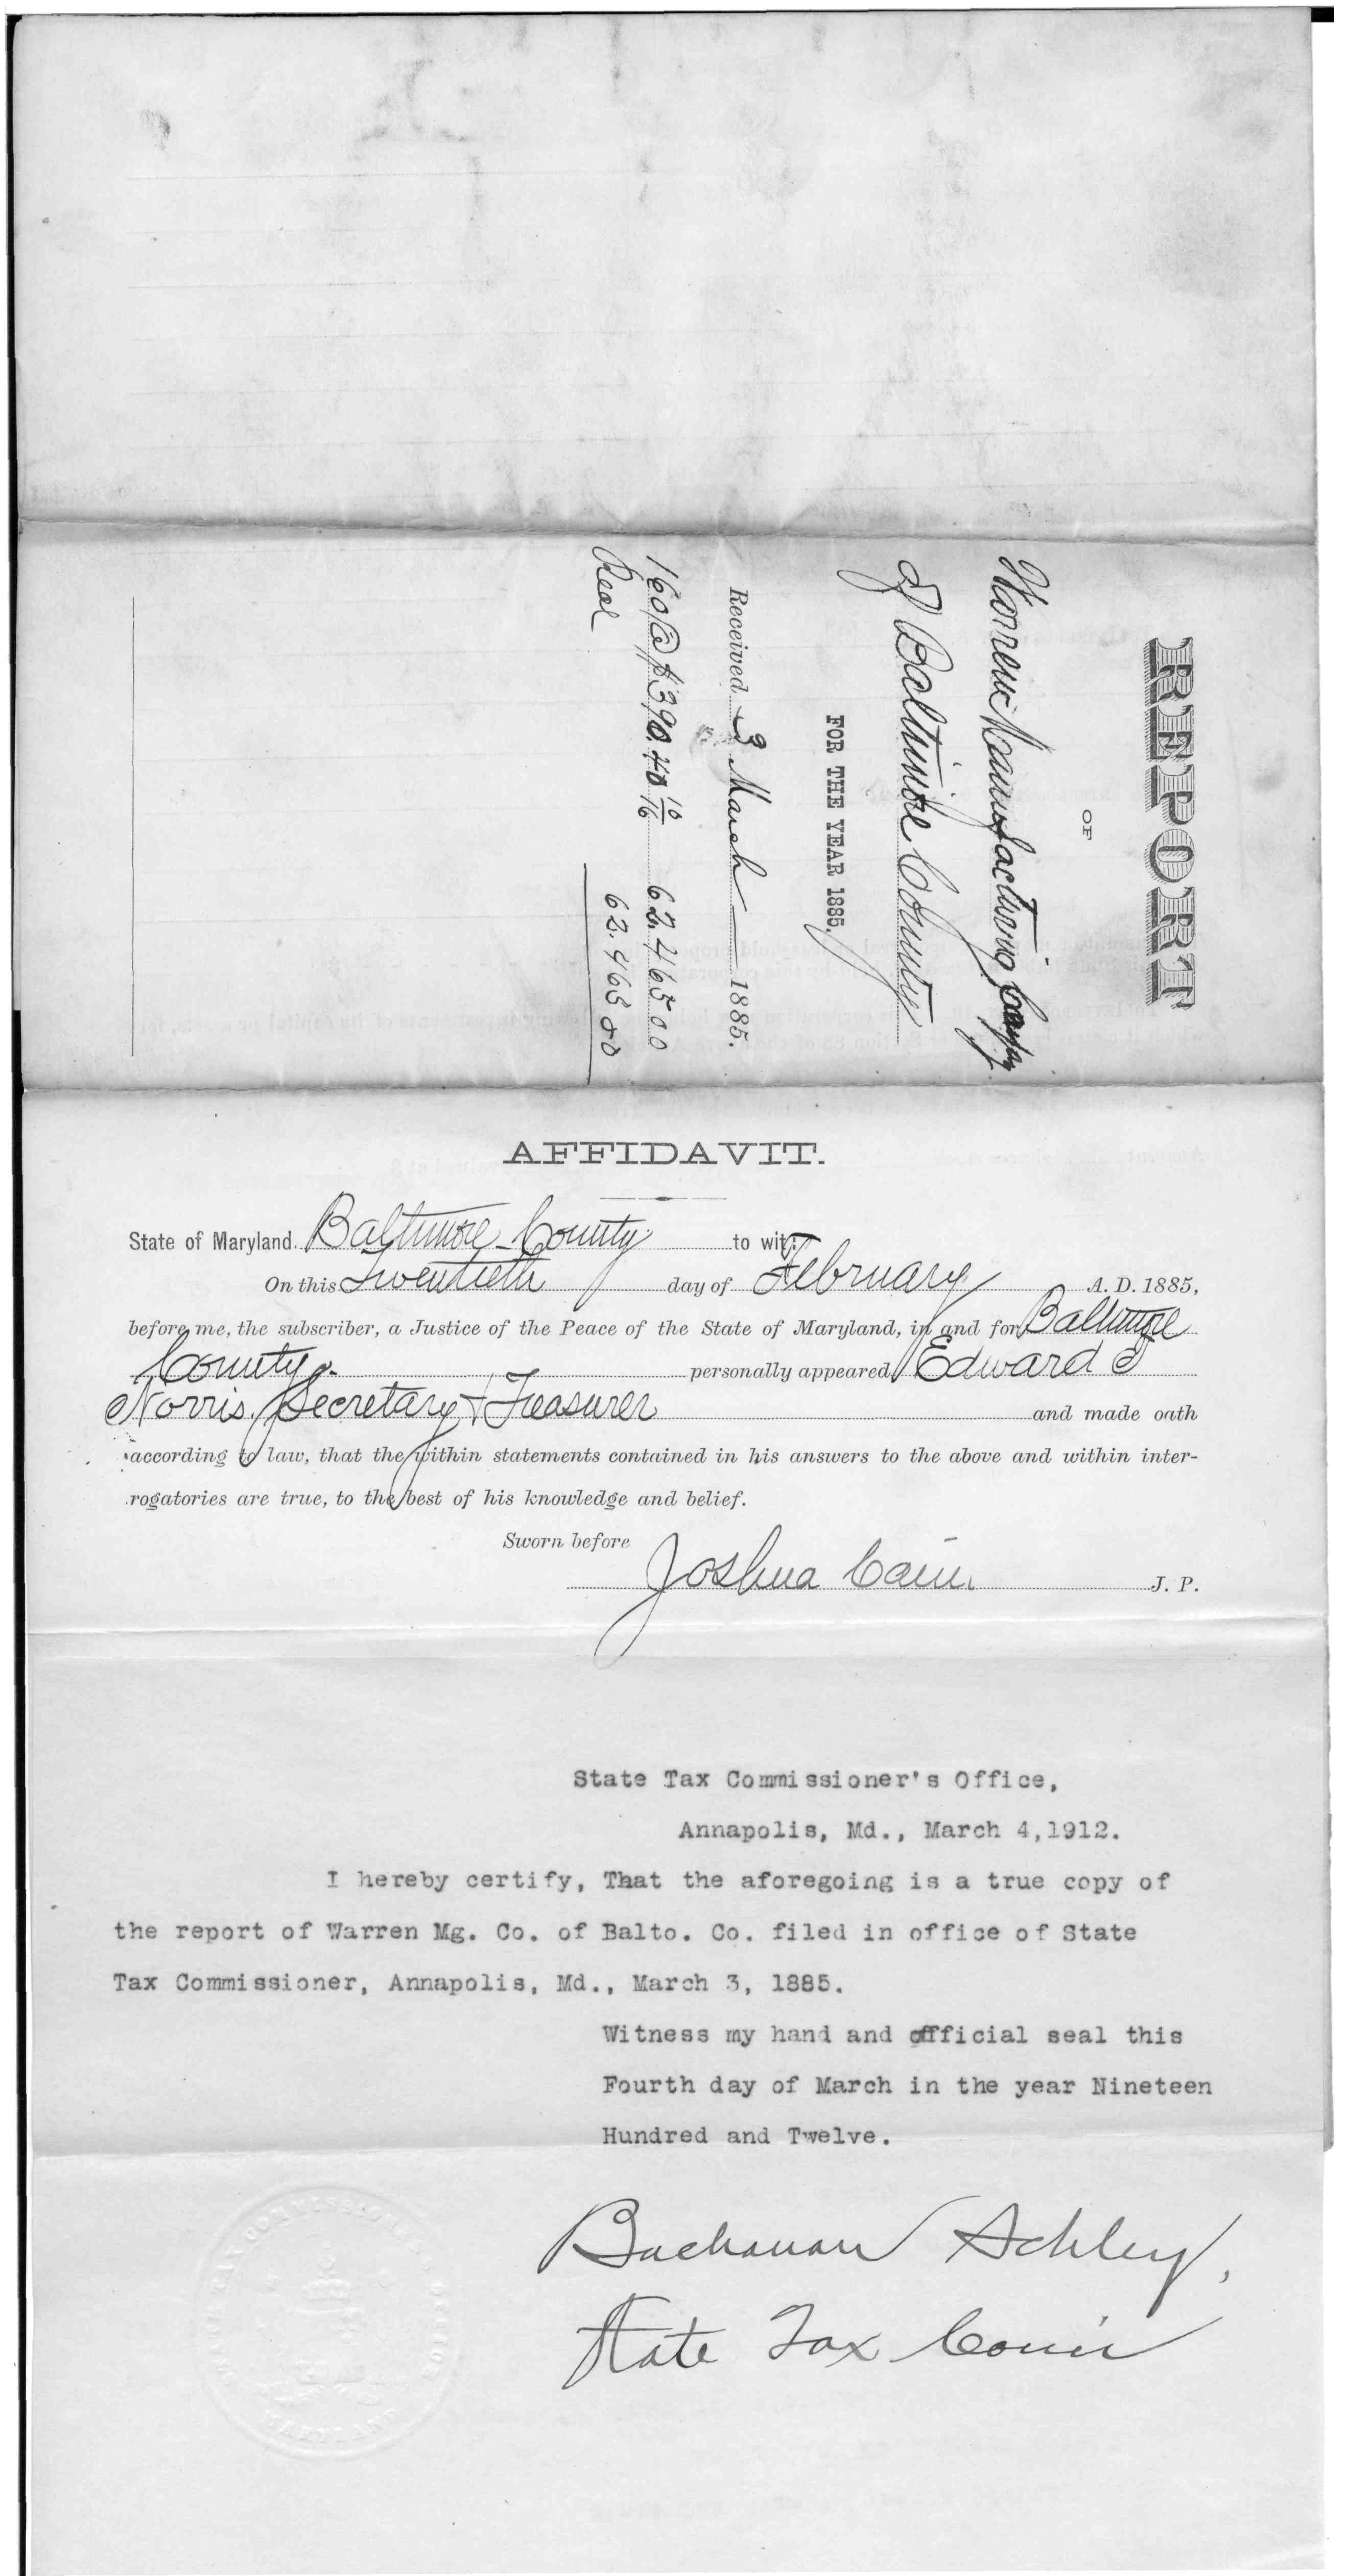 REPORT
OF
Warren Manufacturing Compy
of Baltimore County
FOR THE YEAR 1885.
Received 3 March 1885.
160 @ $390.40 10/16 62.465 00
Real 62.465 00
AFFIDAVIT.
State of Maryland. Baltimore County to wit:
On this Twentieth day of February A. D. 1885,
before me, the subscriber, a Justice of the Peace of the State of Maryland, in and for Baltimore
County. personally appeared Edward
Norris, Secretary & Treasurer and made oath
according to law, that the within statements contained in his answers to the above and within inter-
rogatories are true, to the best of his knowledge and belief.
Sworn before
Joshua Cain J. P.
State Tax Commissioner's Office,
Annapolis, Md., March 4,1912.
I hereby certify, That the aforegoing is a true copy of
the report of Warren Mg. Co. of Balto. Co. filed in office of State
Tax Commissioner, Annapolis, Md., March 3, 1885.
Witness my hand and official seal this
Fourth day of March in the year Nineteen
Hundred and Twelve.
Buchanan Schley,
State Tax Comr
MARYLAND